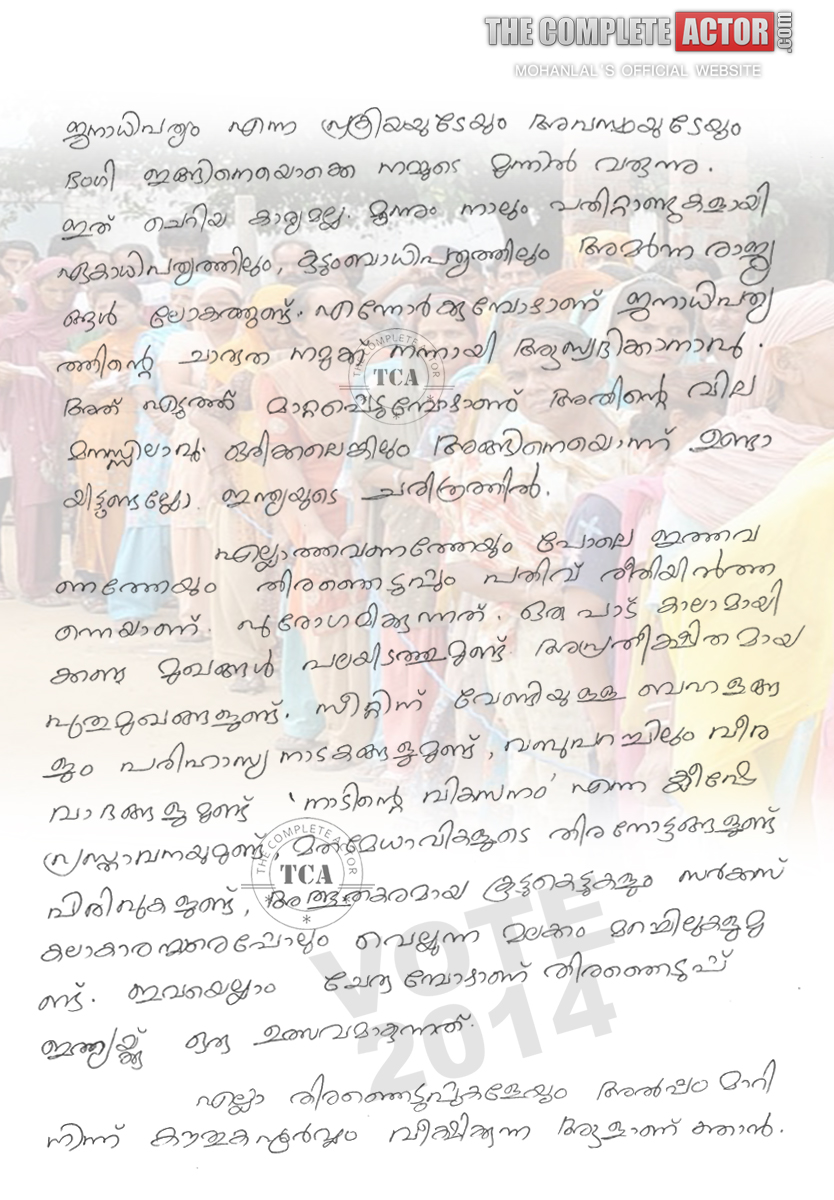 THE COMPLETE ACTOR.com
MOHANLAL'S OFFICIAL WEBSITE
ജനാധിപത്യം എന്ന പ്രക്രിയയുടേയും അവസ്ഥയുടേയും
ഭംഗി ഇങ്ങിനെയൊക്കെ നമ്മുടെ മുന്നിൽ വരുന്നു.
ഇത് ചെറിയ കാര്യമല്ല. മൂന്നും നാലും പതിറ്റാണ്ടുകളായി
ഏകാധിപത്യത്തിലും, കുടുംബാധിപത്യത്തിലും അമർന്ന രാജ്യ
ങ്ങൾ ലോകത്തുണ്ട്. എന്നോർക്കുമ്പോഴാണ് ജനാധിപത്യ
ത്തിന്റെ ചാരുത നമുക്ക് നന്നായി ആസ്വദിക്കാനാവൂ.
അത് എടുത്ത് മാറ്റപ്പെടുമ്പോഴാണ് അതിന്റെ വില
മനസ്സിലാവൂ. ഒരിക്കലെങ്കിലും അങ്ങിനെയൊന്ന് ഉണ്ടാ
യിട്ടുണ്ടല്ലോ. ഇന്ത്യയുടെ ചരിത്രത്തിൽ.
എല്ലാത്തവണത്തേയും പോലെ ഇത്തവ
ണത്തേയും തിരഞ്ഞെടുപ്പും പതിവ് രീതിയിൽത്ത
ന്നെയാണ്. പുരോഗമിക്കുന്നത്. ഒരു പാട് കാലമായി
ക്കണ്ട മുഖങ്ങൾ പലയിടത്തുമുണ്ട്. അപ്രതീക്ഷിതമായ
പുതുമുഖങ്ങളുണ്ട്. സീറ്റിന് വേണ്ടിയുള്ള ബഹളങ്ങ
ളും പരിഹാസ്യ നാടകങ്ങളുമുണ്ട്, വമ്പുപറച്ചിലും വീര
വാദങ്ങളുമുണ്ട് 'നാടിന്റെ വികസനം' എന്ന ക്ലീഷേ
പ്രസ്താവനയുമുണ്ട്, മതമേധാവികളുടെ തിരനോട്ടങ്ങളുണ്ട്
പിരിവുകളുണ്ട്, അത്ഭുതകരമായ കൂട്ടുകെട്ടുകളും സർക്കസ്
കലാകാരന്മാരെപ്പോലും വെല്ലുന്ന മലക്കം മറച്ചിലുകളുമു
ണ്ട്. ഇവയെല്ലാം ചേരുമ്പോഴാണ് തിരഞ്ഞെടുപ്പ്
ഇന്ത്യയ്ക്ക് ഒരു ഉത്സവമാകുന്നത്.
എല്ലാ തിരഞ്ഞെടുപ്പുകളേയും അൽപ്പം മാറി
നിന്ന് കൗതുകപൂർവ്വം വീക്ഷിക്കുന്ന ആളാണ് ഞാൻ.
THE COMPLETE ACTOR
TCA
THE COMPLETE ACTOR
TCA
VOTE
2014